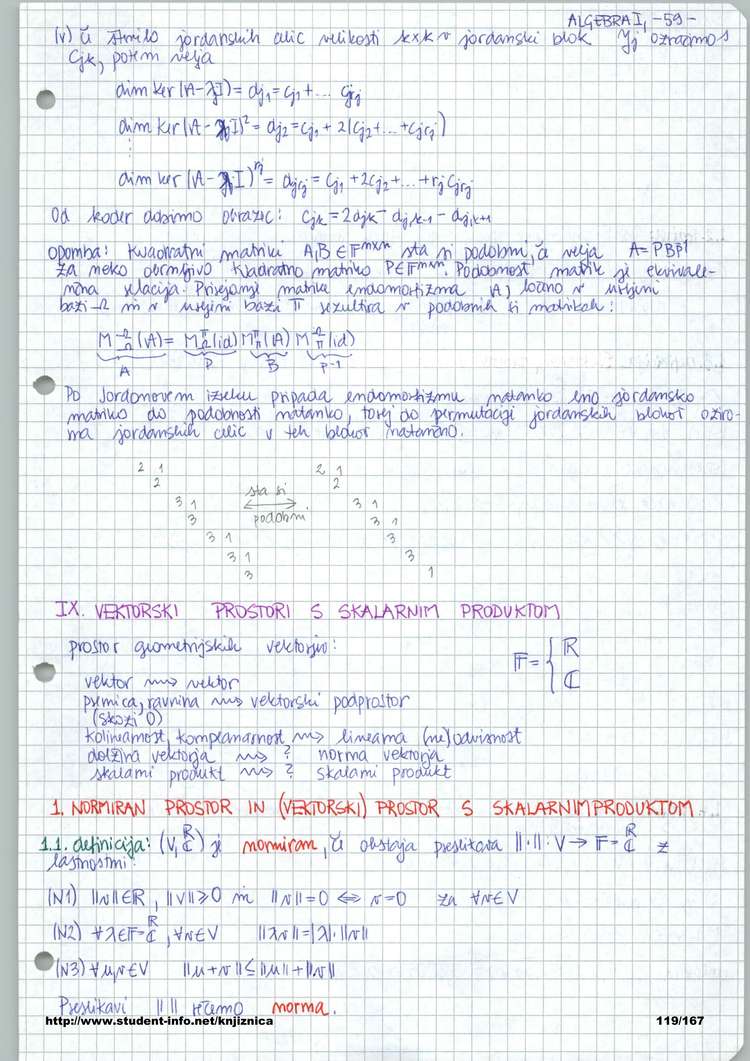 ALGEBRA I, -59-
(v) Če število jordanskih celic velikosti k×k v jordanski blok Jj označimo s
Cjk, potem velja
dim ker (A-λjI) = dj1 = cj1 + ... cjrj
dim ker (A-λjI)² = dj2 = cj1 + 2(cj2 + ... + cjrj)
⋮
dim ker (A-λjI)^rj = djrj = cj1 + 2cj2 + ... + rj cjrj
Od koder dobimo obrazec: cjk = 2djk - dj,k-1 - dj,k+1
opomba: Kvadratni matriki A,B ∈ F^n×n sta si podobni, če velja A = PBP⁻¹
za neko obrnljivo kvadratno matriko P ∈ F^n×n. Podobnost matrik je ekvivale-
nčna relacija. Prirejanje matrike endomorfizma A, ločno v urejeni
bazi Ω in v urejeni bazi Π rezultira v podobnih si matrikah:
M Ω Ω (A) = M Π Ω (id) M Π Π (A) M Ω Π (id)
A P B P⁻¹
Po Jordanovem izreku pripada endomorfizmu natanko eno jordansko
matriko do podobnosti natanko, torej do permutaciji jordanskih blokov oziro-
ma jordanskih celic v teh blokov natančno.
2 1 2 1
2 sta si 2
3 1 3 1
3 podobni 3 1
3 1 3
3 1 3
3 1
IX. VEKTORSKI PROSTORI S SKALARNIM PRODUKTOM
prostor geometrijskih vektorjev: F = { R
C
vektor ⇝ vektor
premica, ravnina ⇝ vektorski podprostor
(skozi 0)
kolinearnost, komplanarnost ⇝ linearna (ne)odvisnost
dolžina vektorja ⇝ ? norma vektorja
skalarni produkt ⇝ ? skalarni produkt
1. NORMIRAN PROSTOR IN (VEKTORSKI) PROSTOR S SKALARNIM PRODUKTOM
1.1. definicija: (V, R C) je normiran, če obstaja preslikava ||·||: V → F = R C z
lastnostmi:
(N1) ||v|| ∈ R, ||v|| ≥ 0 in ||v|| = 0 ⇔ v = 0 za ∀v ∈ V
(N2) ∀λ ∈ F = R C, ∀v ∈ V ||λv|| = |λ|·||v||
(N3) ∀u,v ∈ V ||u+v|| ≤ ||u|| + ||v||
Preslikavi || || rečemo norma.
http://www.student-info.net/knjiznica 119/167